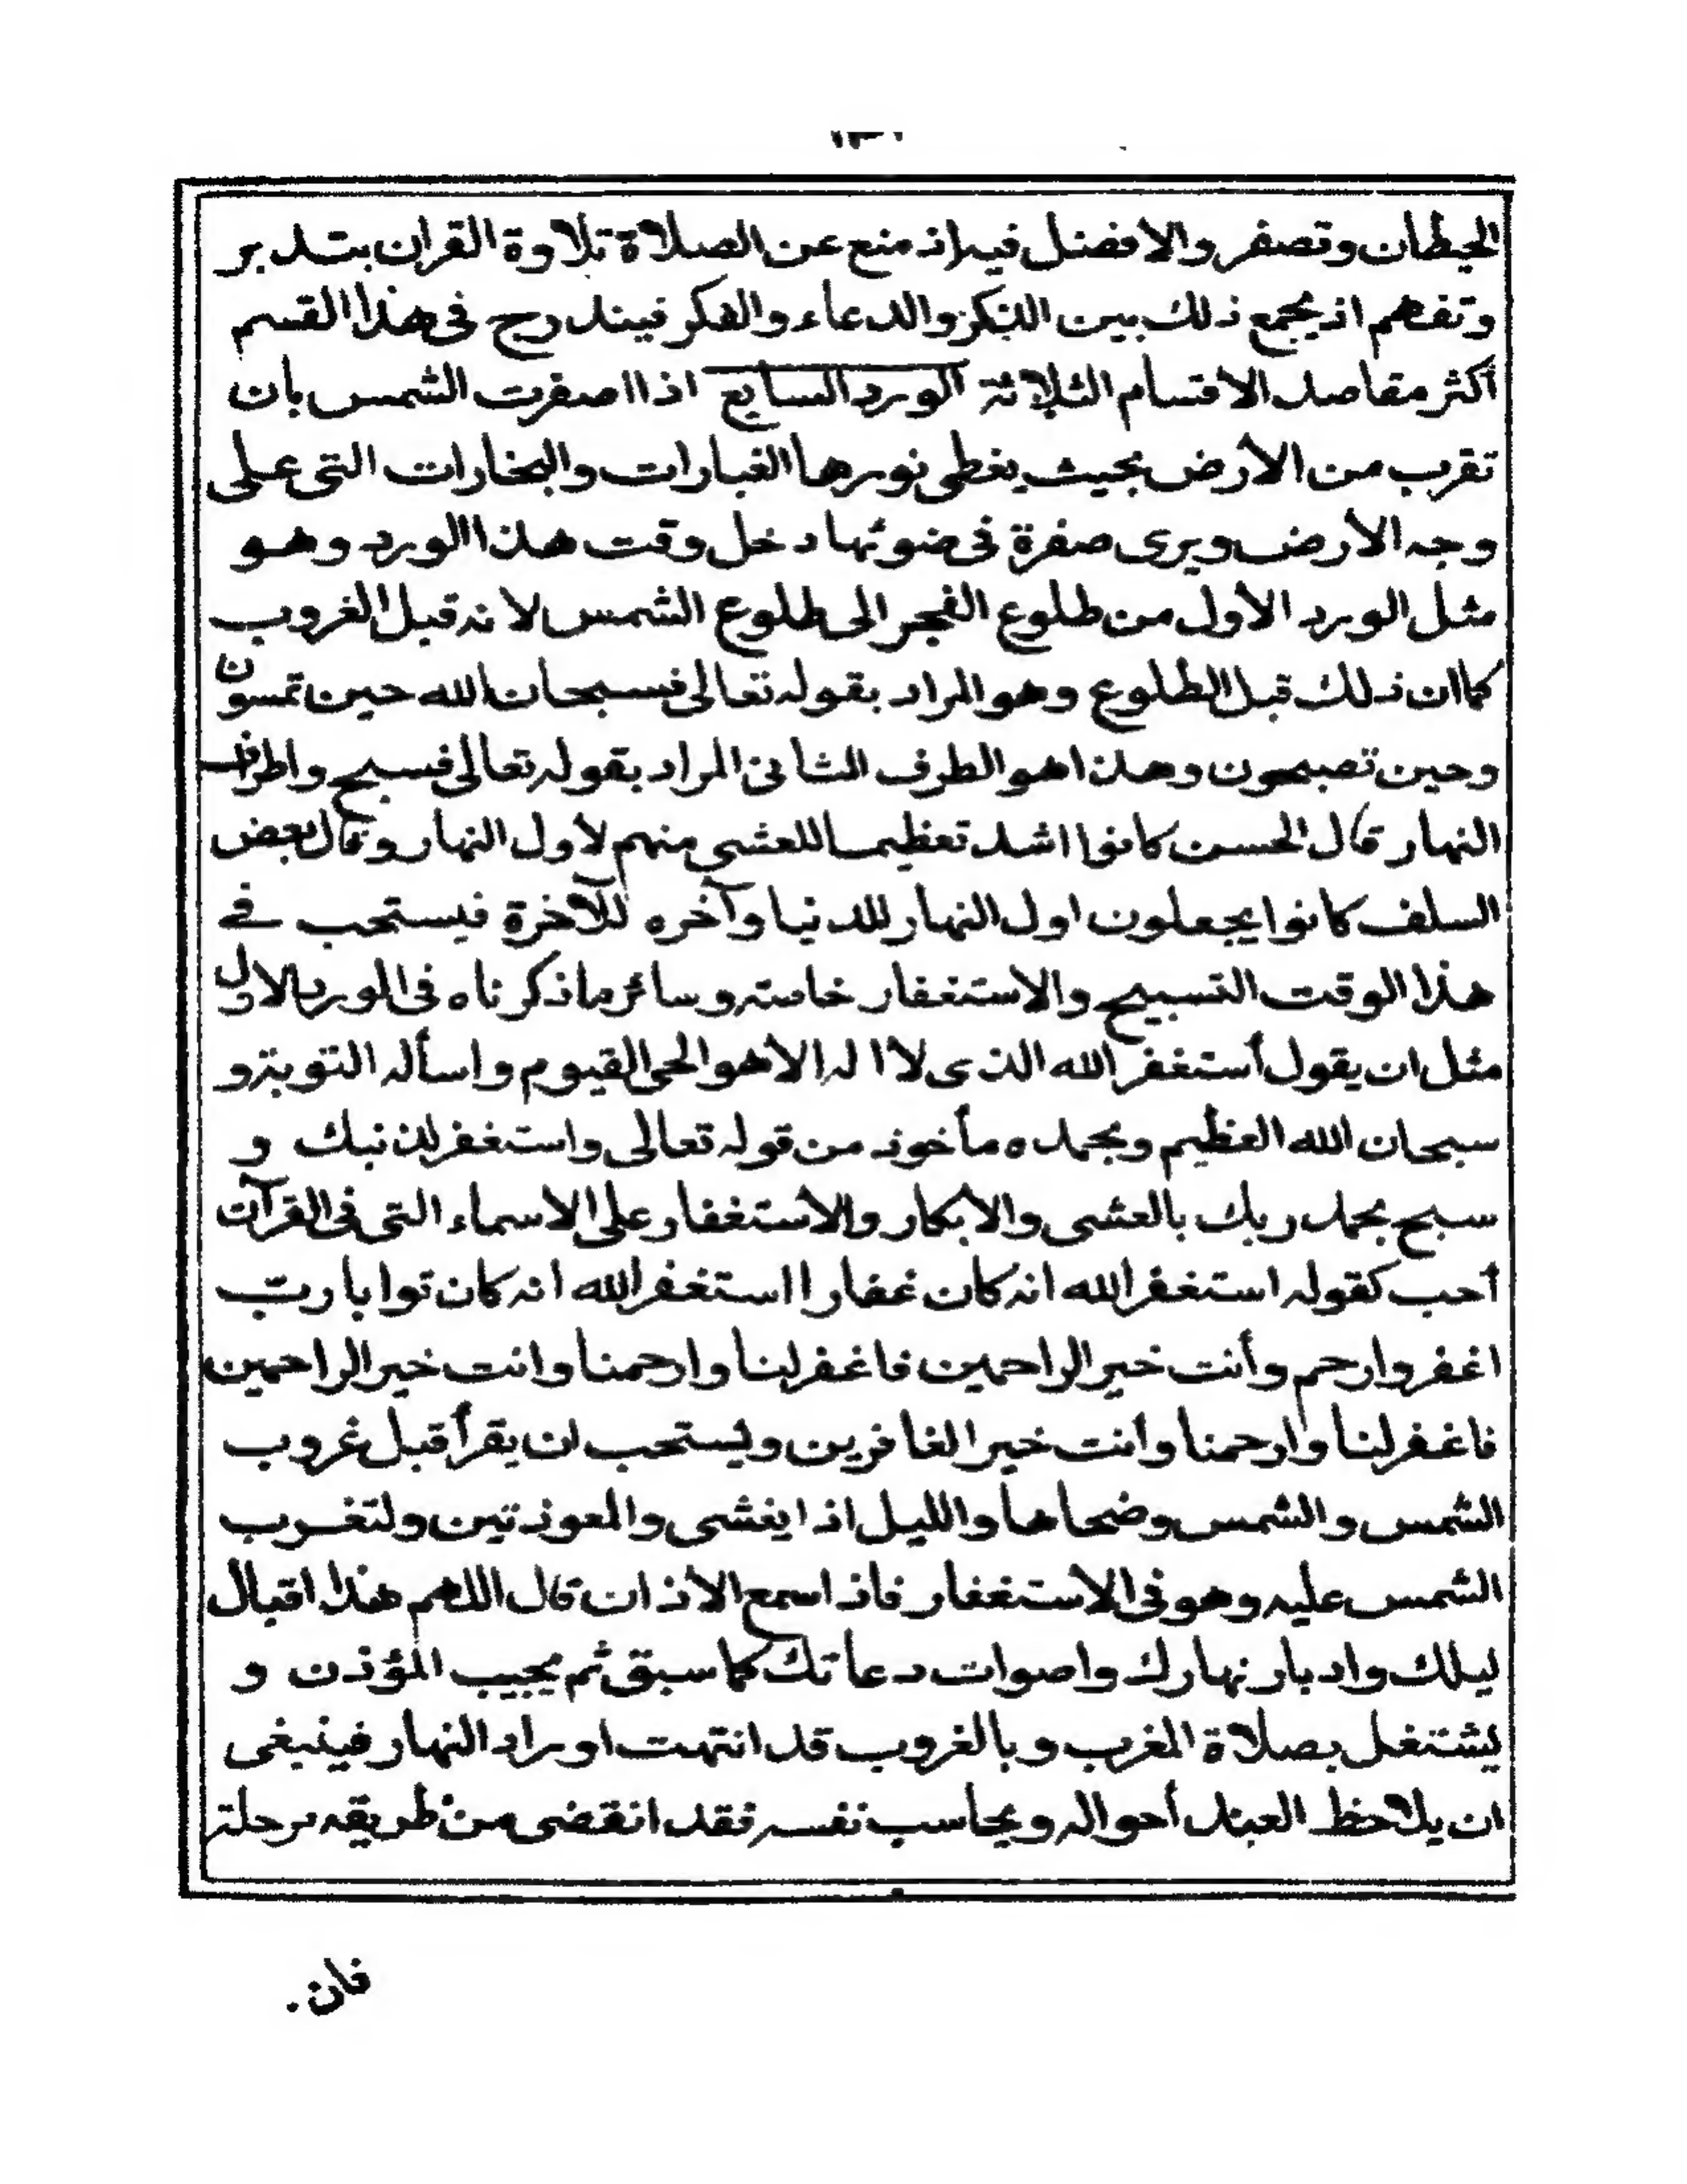 الحيطان وتصفر والافضل فيه اذ منع عن الصلاة تلاوة القران بتدبر
وتفهم اذ يجمع ذلك بين الذكر والدعاء والفكر فيندرج فى هذا القسم
أكثر مقاصد الاقسام الثلاثة الورد السابع اذا اصفرت الشمس بان
تقرب من الأرض بحيث يغطى نورها الغبارات والبخارات التى على
وجه الأرض ويرى صفرة فى ضوئها دخل وقت هذا الورد وهو
مثل الورد الأول من طلوع الفجر الى طلوع الشمس لانه قبل الغروب
كما ان ذلك قبل الطلوع وهو المراد بقوله تعالى فسبحان الله حين تمسون
وحين تصبحون وهذا هو الطرف الثانى المراد بقوله تعالى فسبح واطراف
النهار قال الحسن كانوا اشد تعظيما للعشى منهم لأول النهار وقال بعض
السلف كانوا يجعلون اول النهار للدنيا وآخره للآخرة فيستحب فى
هذا الوقت التسبيح والاستغفار خاصة وسائر ما ذكرناه فى الورد الاول
مثل ان يقول أستغفر الله الذى لا اله الا هو الحى القيوم واسأله التوبة و
سبحان الله العظيم وبحمده مأخوذ من قوله تعالى واستغفر لذنبك و
سبح بحمد ربك بالعشى والابكار والاستغفار على الاسماء التى فى القرآن
أحب كقوله استغفر الله انه كان غفارا استغفر الله انه كان توابا ربّ
اغفر وارحم وأنت خير الراحمين فاغفر لنا وارحمنا وانت خير الراحمين
فاغفر لنا وارحمنا وأنت خير الغافرين ويستحب ان يقرأ قبل غروب
الشمس والشمس وضحاها والليل اذا يغشى والمعوذتين ولتغرب
الشمس عليه وهو فى الاستغفار فاذا سمع الاذان قال اللهم هذا اقبال
ليلك وادبار نهارك واصوات دعاتك كما سبق ثم يجيب المؤذن و
يشتغل بصلاة المغرب وبالغروب قد انتهت اوراد النهار فينبغى
ان يلاحظ العبد أحواله ويحاسب نفسه فقد انقضى من طريقه مرحلة
فان.